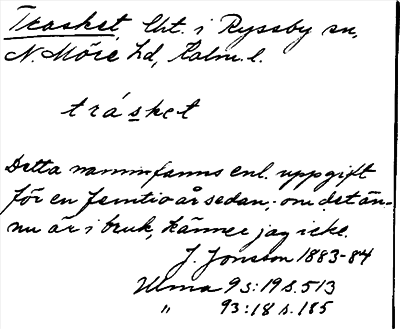 Trasket, lht. i Ryssby sn,
N. Möre hd, Kalm. l.
trásket
Detta namn fanns enl. uppgift
för en femtio år sedan; om det än-
nu är i bruk, känner jag icke.
J. Jonsson 1883-84
Ulma 93:19 s. 513
" 93:18 s. 185